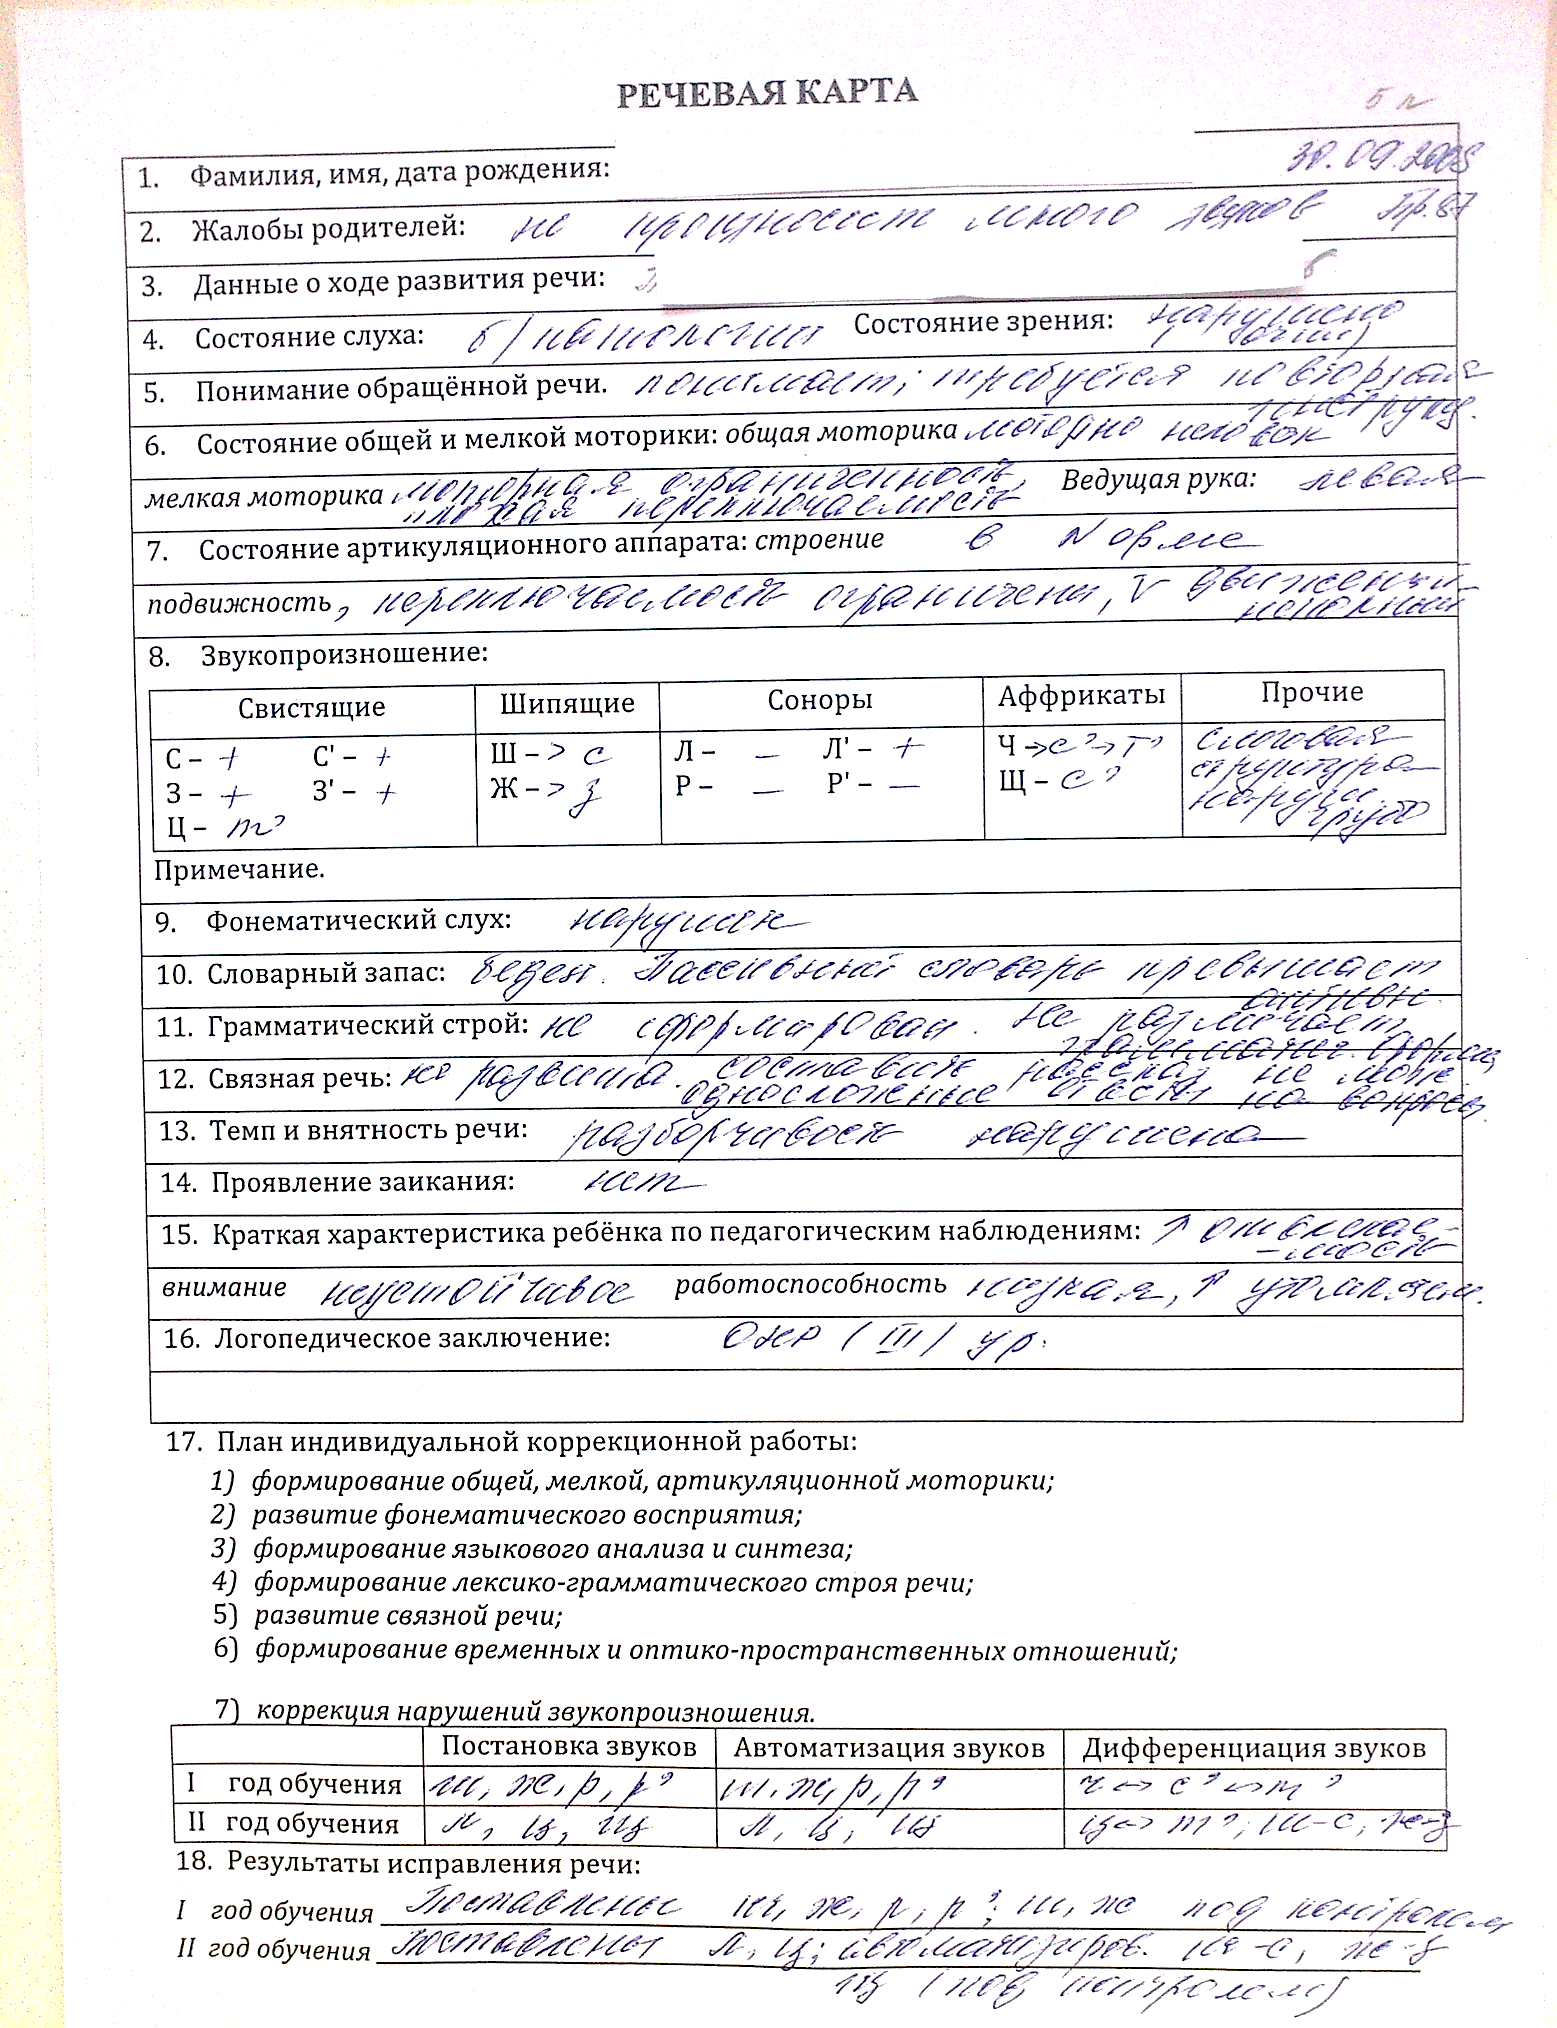 РЕЧЕВАЯ КАРТА
5 л
1. Фамилия, имя, дата рождения: 30.09.2005
2. Жалобы родителей: не произносит много звуков Пр. 87
3. Данные о ходе развития речи:
4. Состояние слуха: б/патологии Состояние зрения: нарушено
(очки)
5. Понимание обращённой речи. понимает; требуется повторная
инструкц.
6. Состояние общей и мелкой моторики: общая моторика моторно неловок
мелкая моторика моторная ограниченность, Ведущая рука: левая
плохая переключаемость
7. Состояние артикуляционного аппарата: строение в Норме
подвижность, переключаемость ограничены, V движений
неполный
8. Звукопроизношение:
Свистящие Шипящие Соноры Аффрикаты Прочие
С – + С' – + Ш –> с Л – – Л' – + Ч –>с'→т' слоговая
З – + З' – + Ж –> з Р – – Р' – – Щ – с' структура
Ц – т' наруш. грубо
Примечание.
9. Фонематический слух: нарушен
10. Словарный запас: беден. Пассивный словарь превышает
активн.
11. Грамматический строй: не сформирован. Не различает
грамматич. формы
12. Связная речь: не развита. составить рассказ не може.
односложные ответы на вопросы.
13. Темп и внятность речи: разборчивость нарушена
14. Проявление заикания: нет
15. Краткая характеристика ребёнка по педагогическим наблюдениям: ↑ отвлекае-
-мость
внимание неустойчивое работоспособность низкая, ↑ утомляем.
16. Логопедическое заключение: ОНР (III) ур.
17. План индивидуальной коррекционной работы:
1) формирование общей, мелкой, артикуляционной моторики;
2) развитие фонематического восприятия;
3) формирование языкового анализа и синтеза;
4) формирование лексико-грамматического строя речи;
5) развитие связной речи;
6) формирование временных и оптико-пространственных отношений;
7) коррекция нарушений звукопроизношения.
Постановка звуков Автоматизация звуков Дифференциация звуков
I год обучения ш, ж, р, р' ш, ж, р, р' ч ↔ с' ↔ т'
II год обучения л, ц, щ л, ц, щ ц↔т'; ш–с, ж–з
18. Результаты исправления речи:
I год обучения Поставлены ш, ж, р, р'; ш, ж под контролем
II год обучения Поставлены л, ц; автоматизиров. ш–с, ж–з
щ (под контролем)